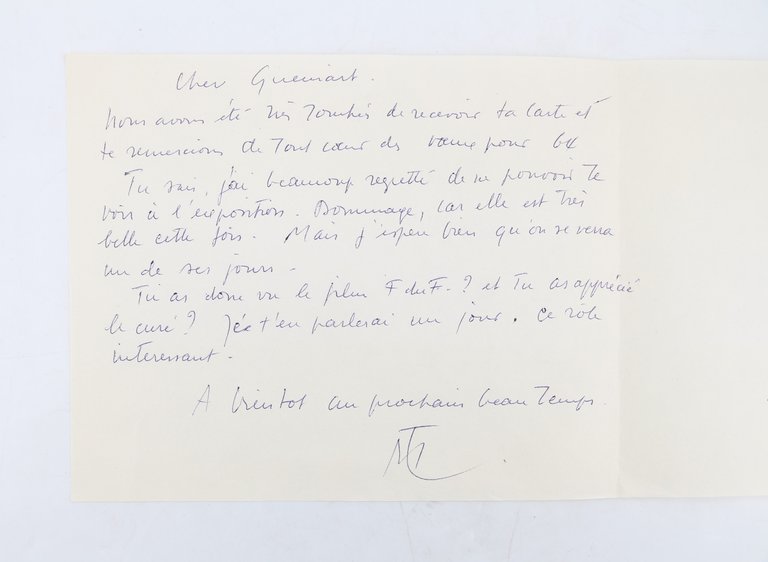 Cher Guemart.
Nous avons été très touchés de recevoir ta carte et
te remercions de tout cœur des vœux pour 64
Tu sais, j'ai beaucoup regretté de ne pouvoir te
voir à l'exposition. Dommage, car elle est très
belle cette fois. Mais j'espère bien qu'on se verra
un de ses jours.
Tu as donc vu le film F du F.? et Tu as apprécié
le curé? t'en parlerai un jour. ce rôle
interessant.
A bientot au prochain beau Temps.